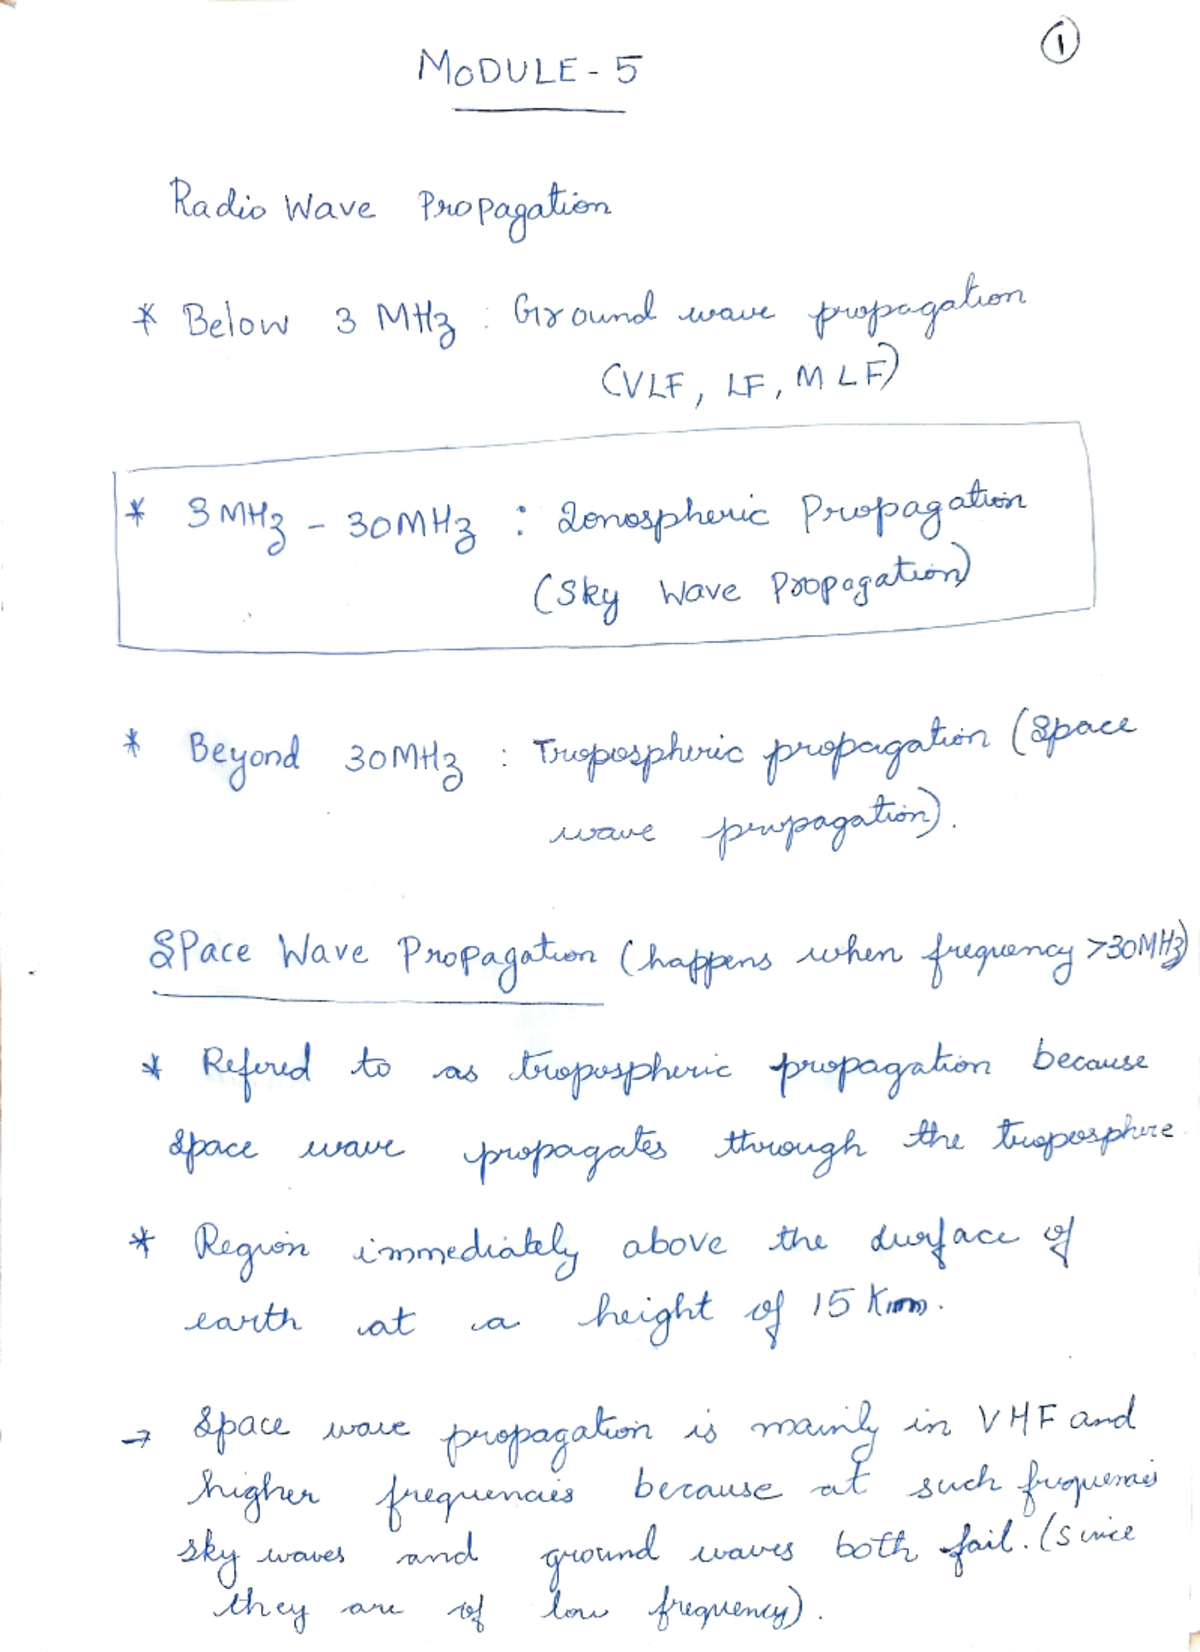 1
MODULE - 5
Radio Wave Propagation
* Below 3 MHz : Ground wave propagation
(VLF, LF, MLF)
* 3MHz - 30MHz : Ionospheric Propagation
(Sky Wave Propagation)
* Beyond 30MHz : Tropospheric propagation (Space
wave propagation).
Space Wave Propagation (happens when frequency >30MHz)
* Refered to as tropospheric propagation because
space wave propagates through the troposphere
* Region immediately above the surface of
earth at a height of 15 Km.
→ Space wave propagation is mainly in VHF and
higher frequencies because at such frequencies
sky waves and ground waves both fail. (Since
they are of low frequency).